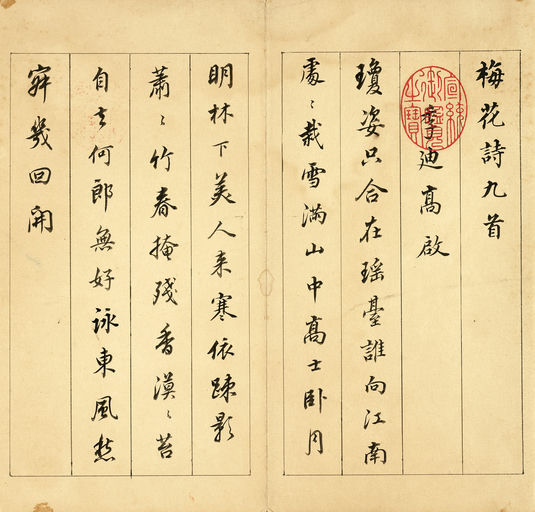 梅花詩九首
季迪高啟
瓊姿只合在瑶臺誰向江南
處〻栽雪滿山中高士卧月
明林下美人来寒依踈影
蕭〻竹春掩殘香漠〻苔
自去何郎無好詠東風愁
寂幾回開
宣統御覽之寶